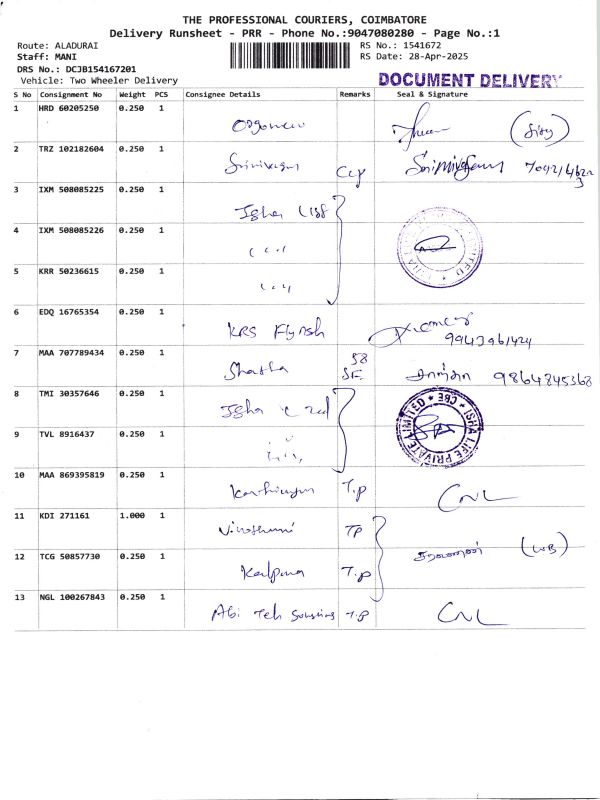 THE PROFESSIONAL COURIERS, COIMBATORE
Delivery Runsheet - PRR - Phone No.:9047080280 - Page No.:1
Route: ALADURAI
RS No.: 1541672
Staff: MANI
RS Date: 28-Apr-2025
DRS No.: DCJB154167201
Vehicle: Two Wheeler Delivery
DOCUMENT DELIVERY
S No Consignment No Weight PCS Consignee Details Remarks Seal & Signature
1 HRD 60205250 0.250 1
2 TRZ 102182604 0.250 1
3 IXM 508085225 0.250 1 Isha
4 IXM 508085226 0.250 1
5 KRR 50236615 0.250 1
6 EDQ 16765354 0.250 1 KRS
7 MAA 707789434 0.250 1 9864845368
8 TMI 30357646 0.250 1 Isha
ISHA LIFE PRIVATE LIMITED * CBE *
9 TVL 8916437 0.250 1
10 MAA 869395819 0.250 1 T.P
11 KDI 271161 1.000 1 TP
12 TCG 50857730 0.250 1 Kalpana T.p சரவணன்
13 NGL 100267843 0.250 1 Abi T.p